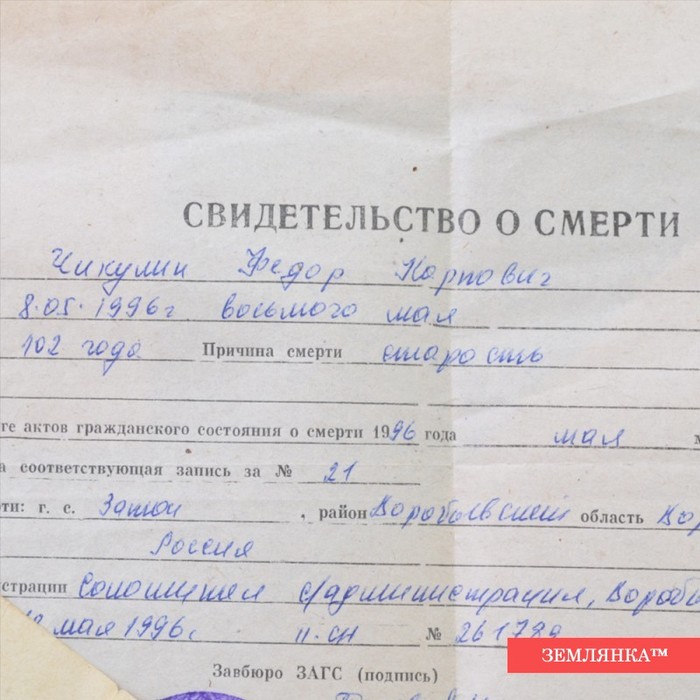 СВИДЕТЕЛЬСТВО О СМЕРТИ
Чикулин Федор Карпович
8.05.1996г восьмого мая
102 года Причина смерти старость
ге актов гражданского состояния о смерти 1996 года мая
а соответствующая запись за № 21
ти: г. с. , район Воробьевский область Вор
Россия
истрации с/администрация, Вороб
мая 1996г II-СИ № 261789
ЗЕМЛЯНКА™
Завбюро ЗАГС (подпись)